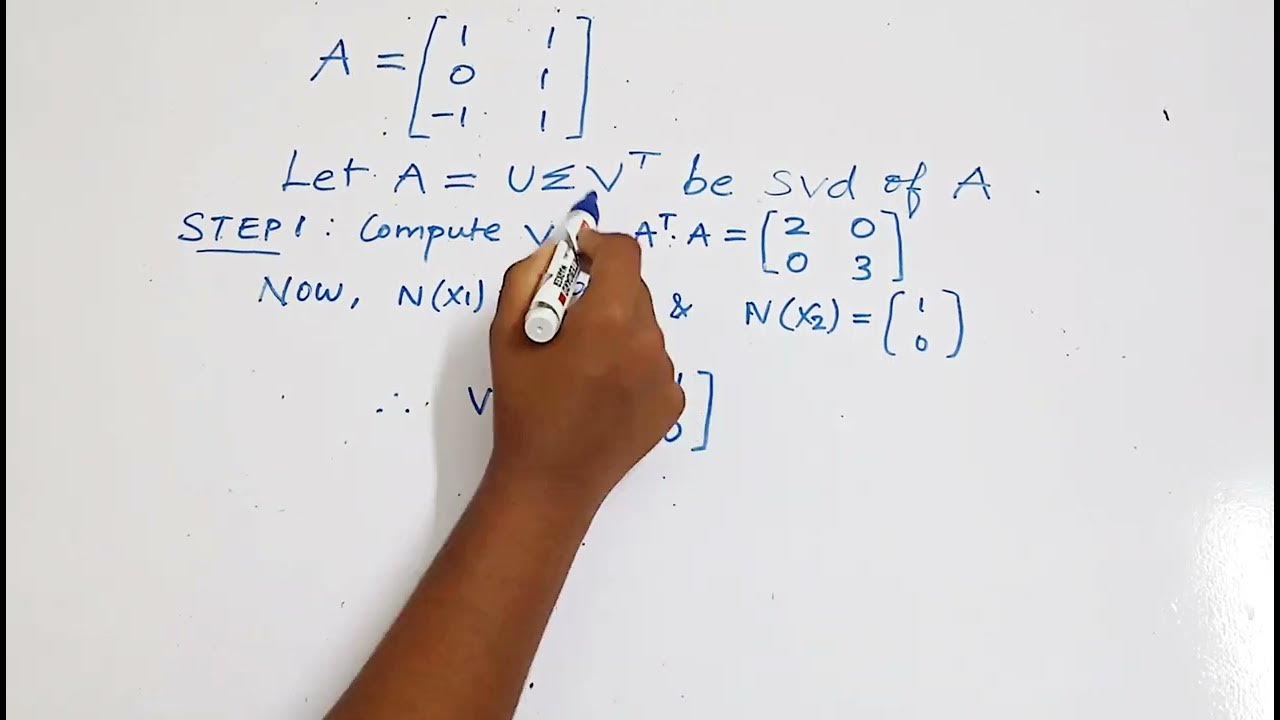 A = [1 1
0 1
-1 1]
Let A = UΣV^T be svd of A.
STEP 1: Compute V A^T.A = [2 0
0 3]
Now, N(X1) & N(X2) = (1
0)
∴ V 0]